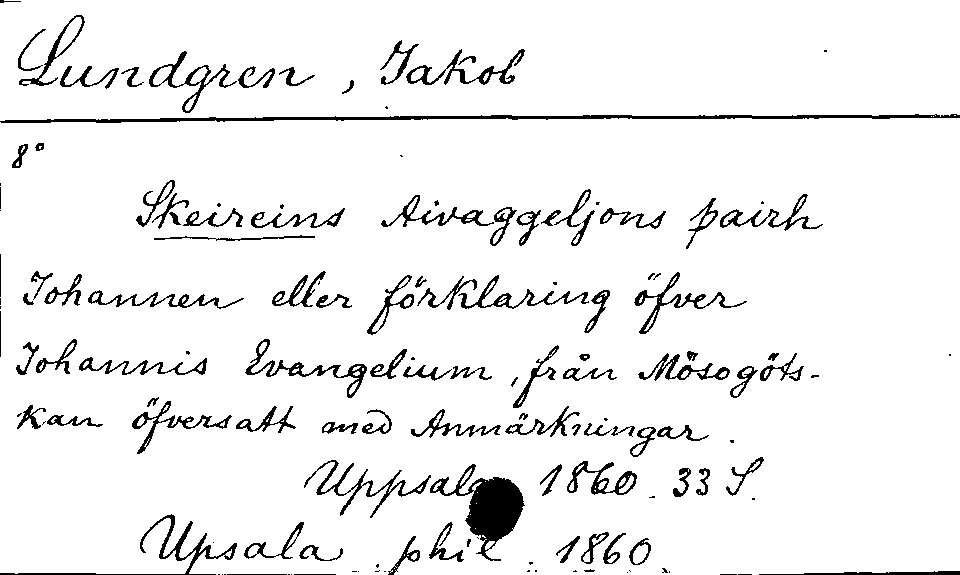 Lundgren, Jakob
8°
Skeireins Aivaggeljons þairh
Johannen eller förklaring öfver
Johannis Evangelium, från Mösogöts-
kan öfversatt med Anmärkningar.
Uppsala 1860. 33 S.
Upsala. phil. 1860